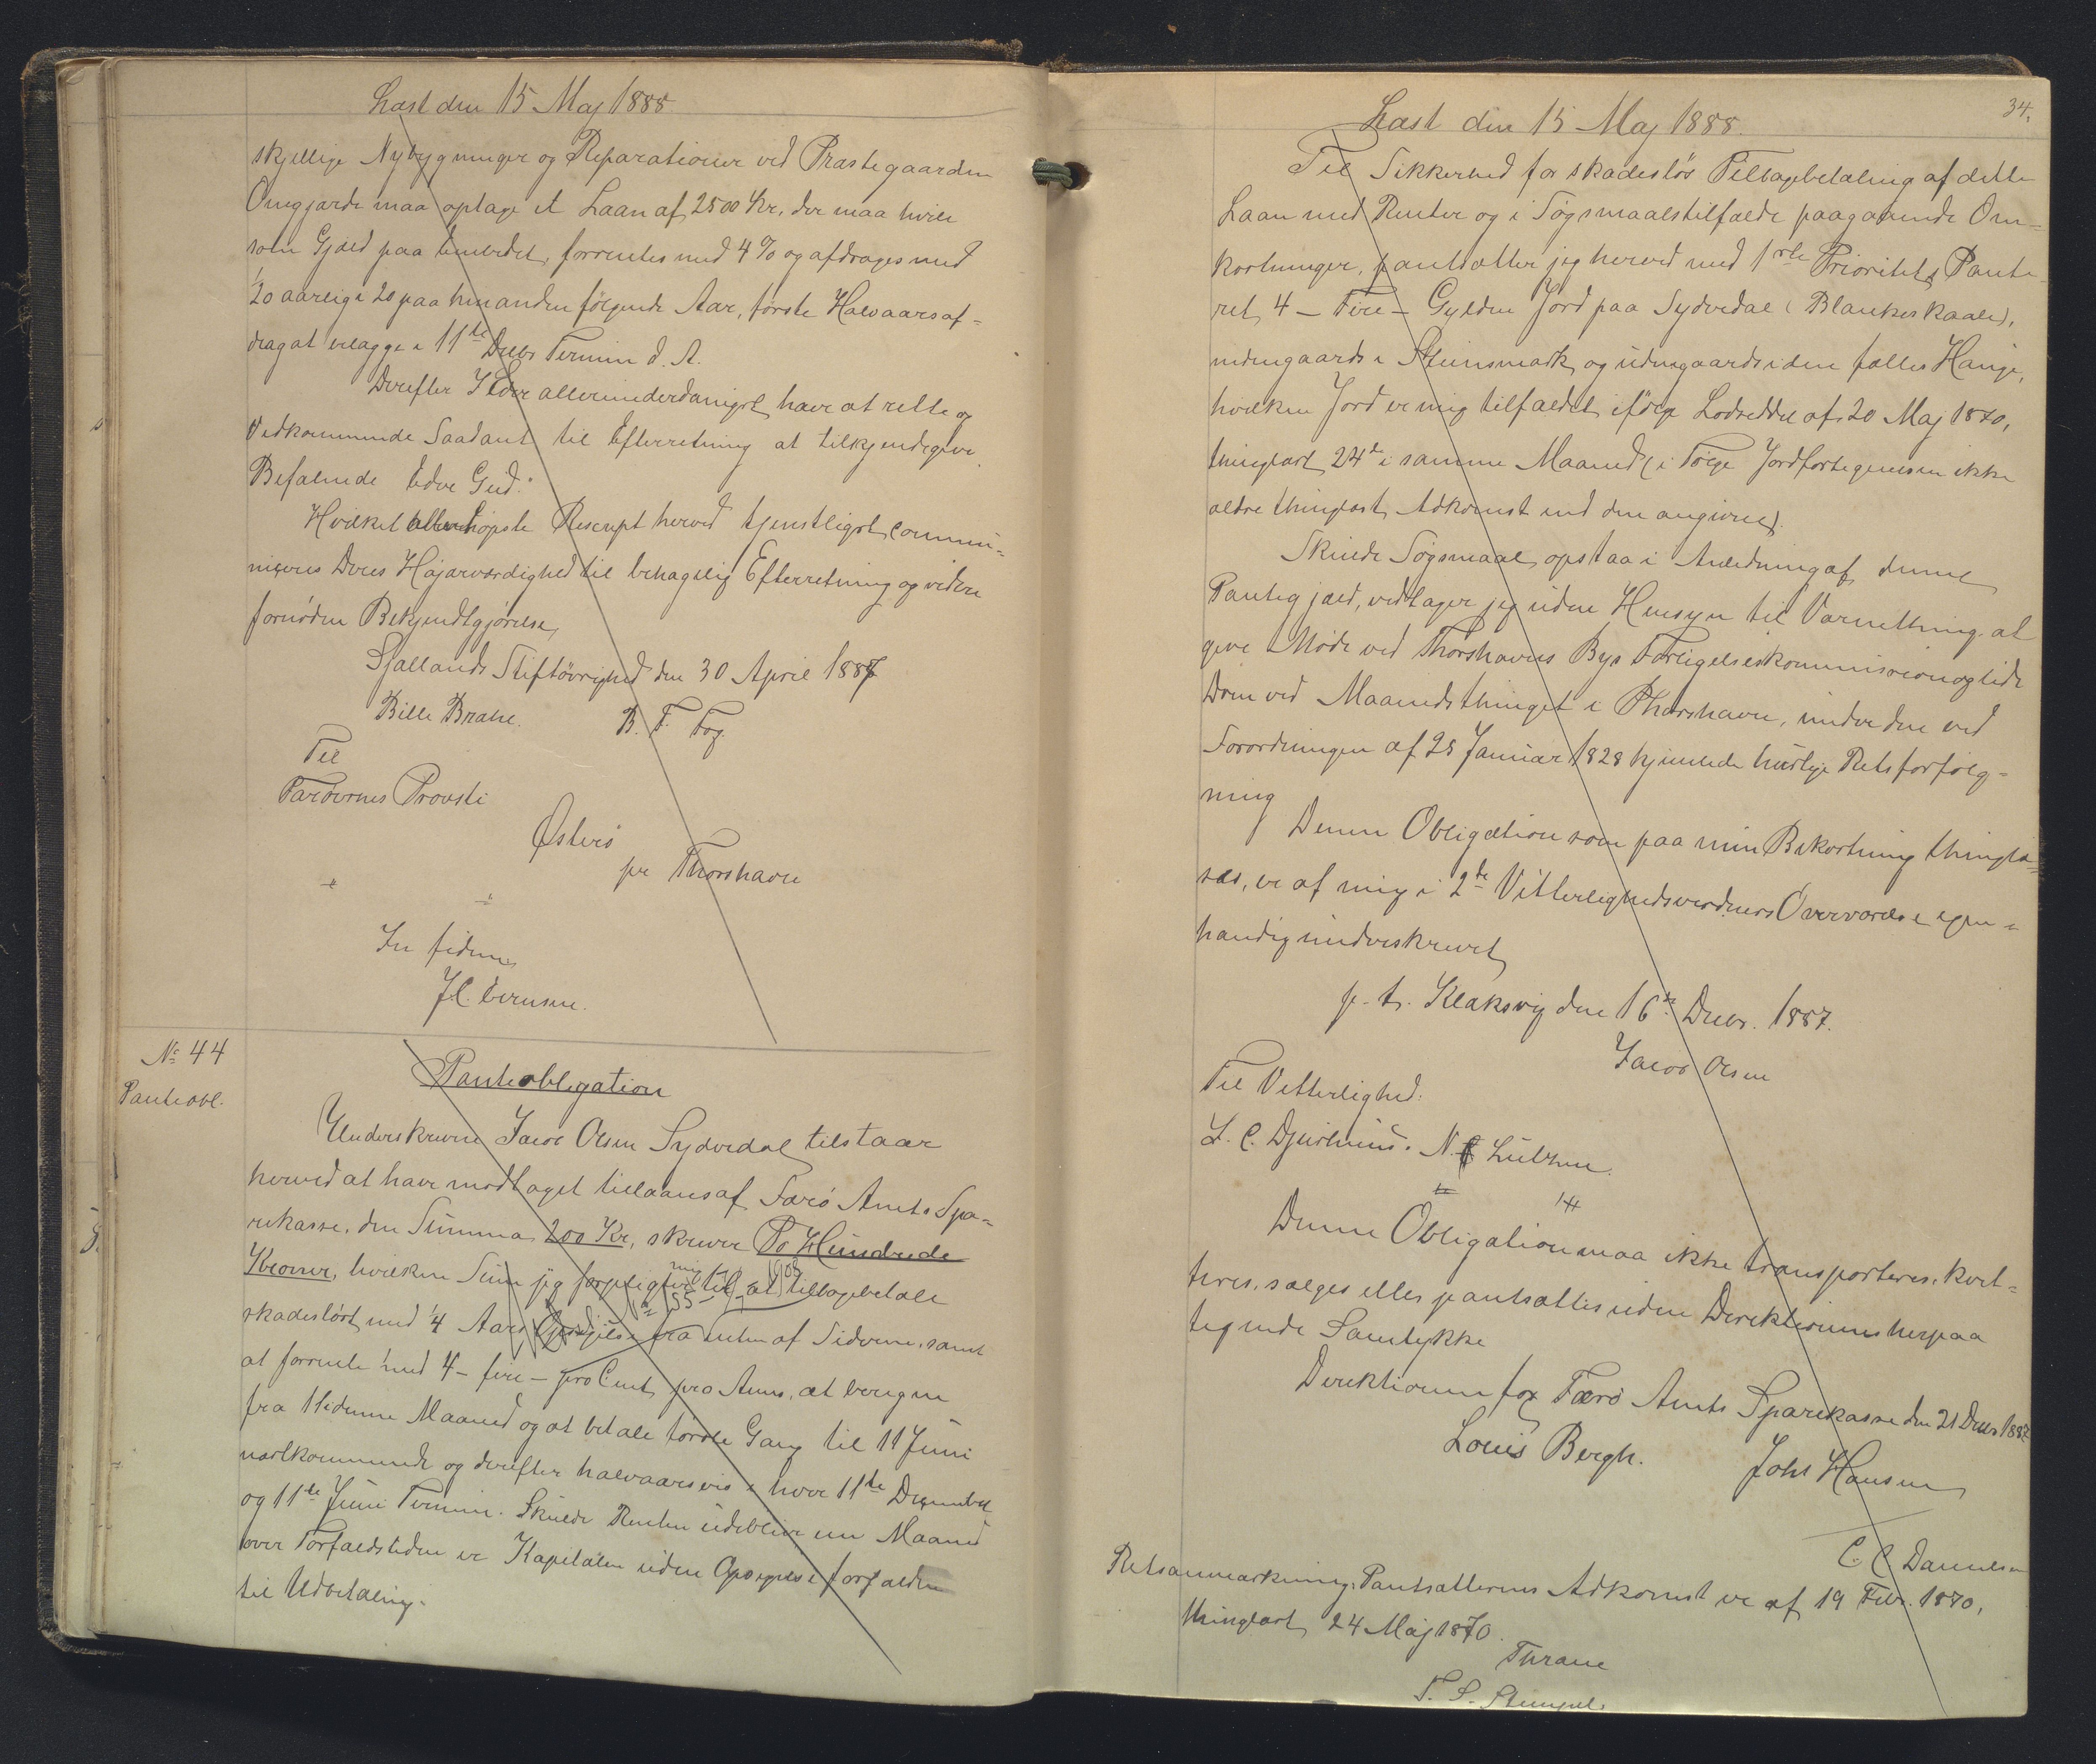 Læst den 15 Maj 1888
skjellige Nybygninger og Reparationer ved Præstegaarden
Ongjarde maa optage et Laan af 2500 Kr. der maa hvile
som Gjæld paa Embedet, forrentes med 4% og afdrages med
1/20 aarlig i 20 paa hinanden følgende Aar, første Halvaarsaf=
drag at erlægge i 11te Decbr Termin d. A.
Derefter I Eder allerunderdanigst have at rette og
Vedkommende Saadant til Efterretning at tilkjendegive
Befalende Eder Gud."
Hvilket allerhøjeste Rescript herved tjenstligst commu=
niceres Deres Højærværdighed til behagelig Efterretning og videre
fornøden Bekjendtgjørelse,
Sjællands Stiftøvrighed den 30 April 1887
Bille Brahe. B. F. Fog.
Til
Færøernes Provsti
Østerø
pr Thorshavn
In fidem
J.C. Evensen.
№ 44
Panteobl.
Panteobligation
Underskrevne Jacob Olsen Sydredal tilstaar
herved at have modtaget tillaans af Færø Amts Spa=
rekasse, den Summa 200 Kr, skriver To Hundrede
Kroner, hvilken Sum jeg forpligter mig til at tilbagebetale
skadesløst med 1/4 Aars Opsigelse fra en af Siderne, samt
at forrente med 4 - fire - pro Cent pro Anno, at beregne
fra 11 denne Maaned og at betale første Gang til 11 Juni
næstkommende og derefter halvaarsvis i hver 11te December
og 11te Juni Termin. Skulde Renten udeblive en Maaned
over Forfaldstiden er Kapitalen uden Opsigelse forfalden
til Udbetaling.
34.
Læst den 15 Maj 1888.
Til Sikkerhed for skadesløs Tilbagebetaling af dette
Laan med Renter og i Søgsmaalstilfælde paagaaende Om=
kostninger, pantsætter jeg herved med 1ste Prioritets Pante
ret 4 - Fire - Gylden Jord paa Sydredal (Blankeskaale),
indengaards i Steinsmark og udengaards i den fælles Hauge,
hvilken Jord er mig tilfaldet ifølge Lodseddel af 20 Maj 1870,
thinglæst 24de i samme Maaned (i Følge Jordfortegnelsen ikke
ældre thinglæst Adkomst end den angivne).
Skulde Søgsmaal opstaa i Anledning af denne
Pantegjæld, vedtager jeg uden Hensyn til Værnething at
give Møde ved Thorshavns Bys Forligelseskommission og lide
Dom ved Maanedsthinget i Thorshavn, under den ved
Forordningen af 25 Januar 1828 hjemlede hurtige Retsforfølg=
ning
Denne Obligation som paa min Bekostning thinglæ=
ses, er af mig i 2de Vitterlighedsvidners Overværelse egen=
hændig underskrevet
p. t. Klaksvig den 16de Decbr. 1887.
Jacob Olsen
Til Vitterlighed:
L. C. Djurhuus. N. Lützen.
Denne Obligation maa ikke transporteres, kvit=
teres, sælges eller pantsættes uden Direktionens herpaa
tegnede Samtykke
Direktionen for Færø Amts Sparekasse den 21 Decbr 1887
Louis Bergh. Johs Hansen
C. C. Danielsen
Retsanmærkning: Pantsætterens Adkomst er af 19 Febr. 1870,
thinglæst 24 Maj 1870.
Thrane
T. S. Stempel.